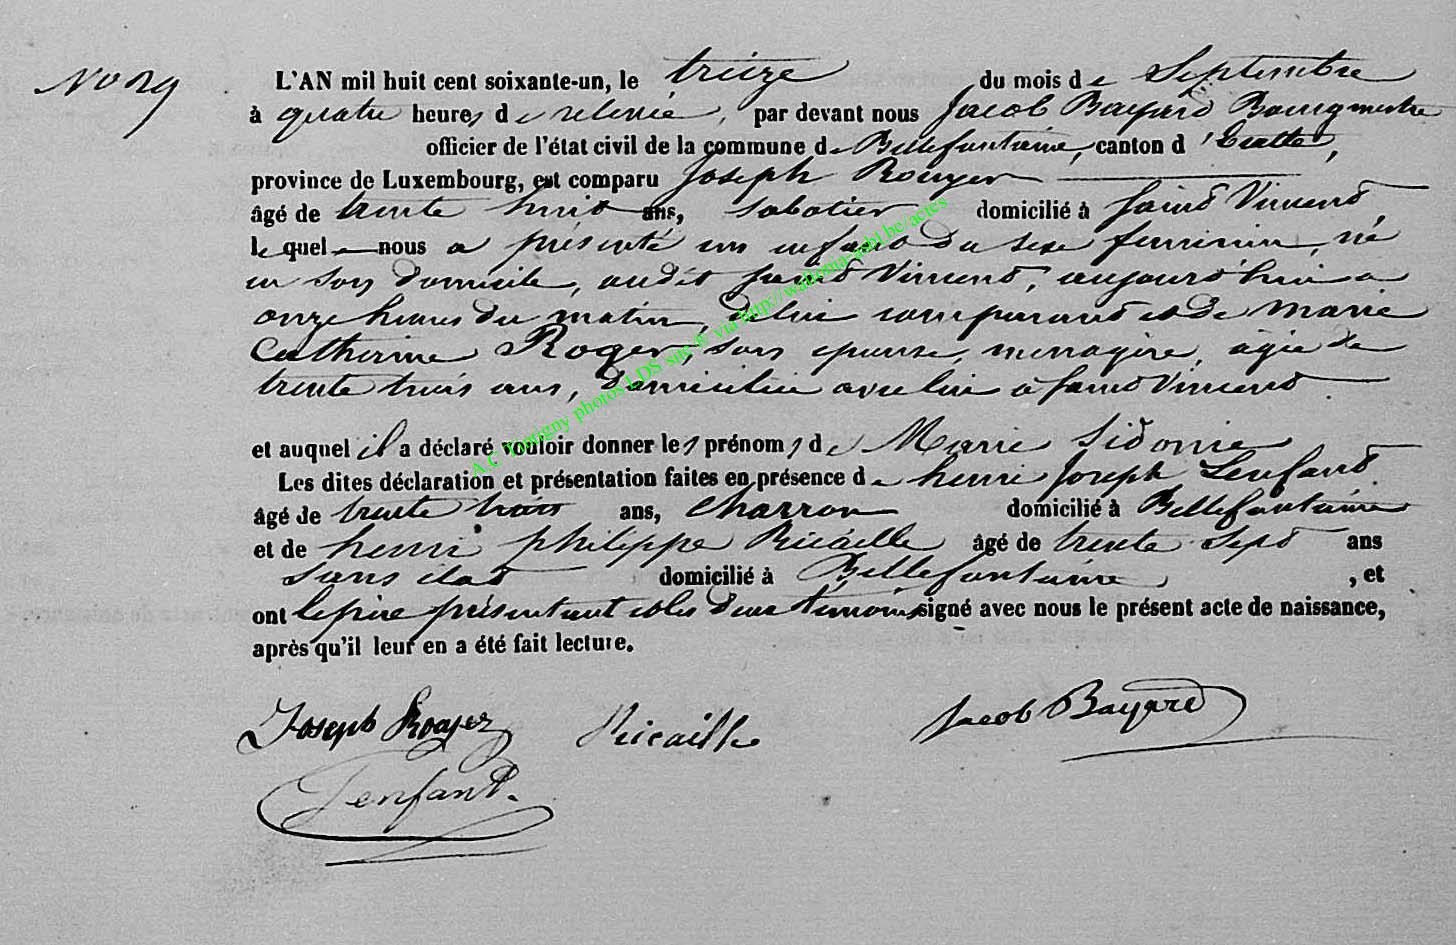 No 29
L'AN mil huit cent soixante-un, le treize du mois de Septembre
à quatre heures de relevée, par devant nous Jacob Bayard Bourgmestre
officier de l'état civil de la commune de Bellefontaine, canton d'Etalle,
province de Luxembourg, est comparu Joseph Rouyer
âgé de trente huit ans, sabotier domicilié à Saint Vincent,
lequel nous a présenté un enfant du sexe feminin, né
en son domicile, audit Saint Vincent, aujourd'hui a
onze heures du matin, de lui comparant et de Marie
Catherine Roger, son epouse, menagère, agée de
trente trois ans, domiciliée avec lui à Saint Vincent
et auquel il a déclaré vouloir donner les prénoms de Marie Sidonie
Les dites déclaration et présentation faites en présence de henri Joseph Lenfant
âgé de trente trois ans, charron domicilié à Bellefontaine
et de henri philippe Ricaille âgé de trente sept ans
sans état domicilié à Bellefontaine, , et
ont le père présentant et les deux témoins signé avec nous le présent acte de naissance,
après qu'il leur en a été fait lecture.
Joseph Rouyer Ricaille Jacob Bayard
Lenfant.
A.C Tintigny photos LDS site @ via http://wallonia-asbl.be/actes